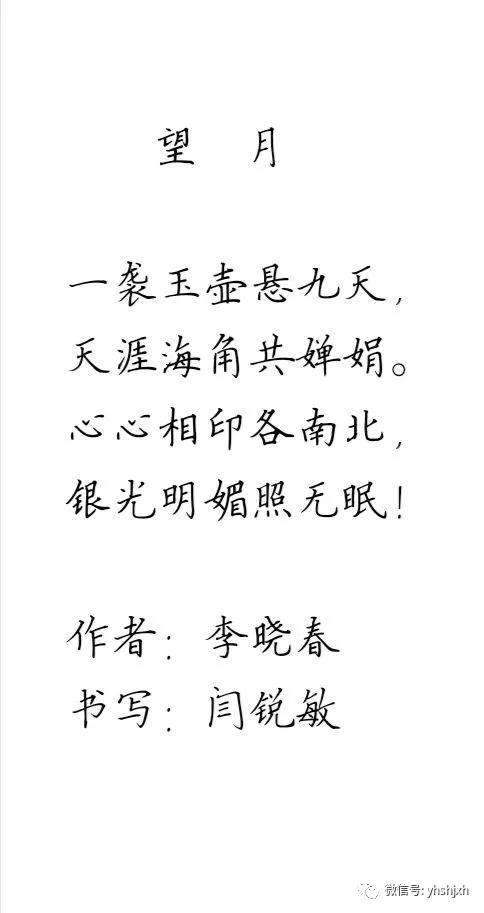 望 月
一袭玉壶悬九天，
天涯海角共婵娟。
心心相印各南北，
银光明媚照无眠！
作者：李晓春
书写：闫锐敏
微信号: yhshjxh